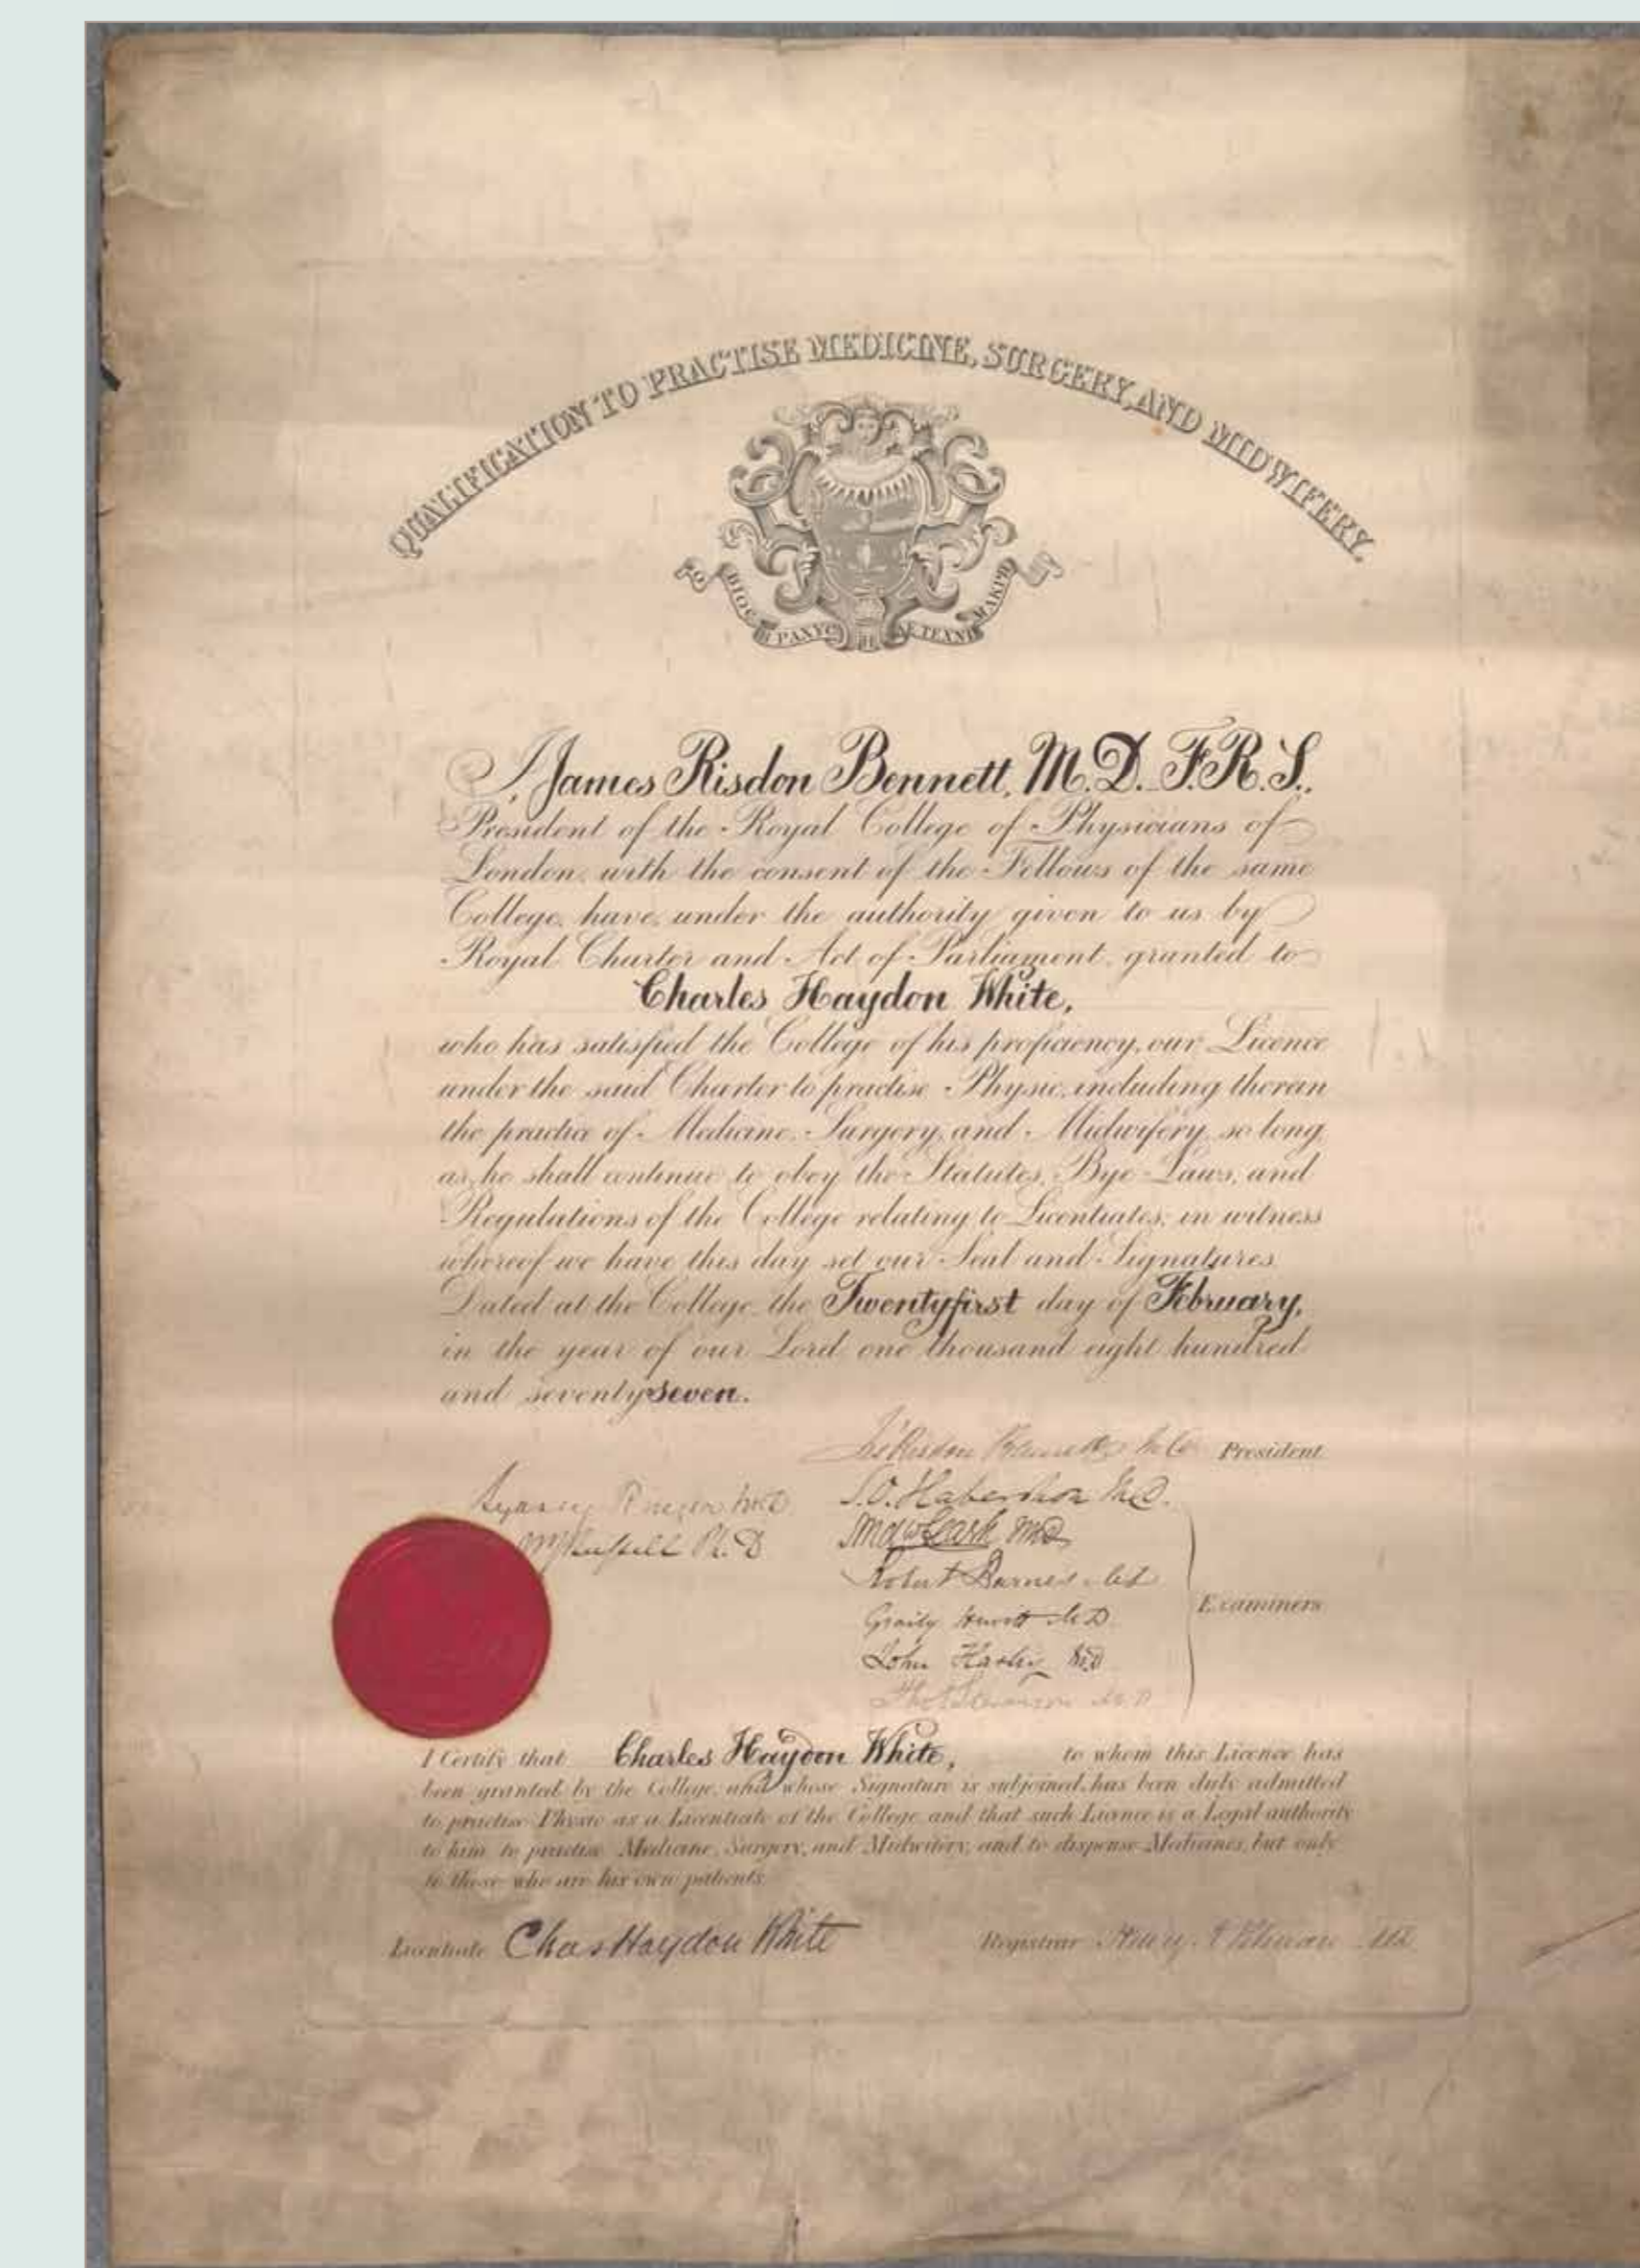 QUALIFICATION TO PRACTISE MEDICINE, SURGERY, AND MIDWIFERY.
I, James Risdon Bennett, M.D. F.R.S.,
President of the Royal College of Physicians of
London, with the consent of the Fellows of the same
College, have, under the authority given to us by
Royal Charter and Act of Parliament, granted to
Charles Haydon White,
who has satisfied the College of his proficiency, our Licence
under the said Charter to practise Physic, including therein
the practice of Medicine, Surgery, and Midwifery, so long
as he shall continue to obey the Statutes, Bye-Laws, and
Regulations of the College relating to Licentiates; in witness
whereof we have this day set our Seal and Signatures.
Dated at the College, the Twentyfirst day of February,
in the year of our Lord one thousand eight hundred
and seventy seven.
Risdon Bennett President
Sydney Ringer S.O. Habershon M.D.
Ph. D
Robert Barnes M.D.
Graily Hewitt M D Examiners
John Harley M.D.
Thos. Stevenson M.D.
I Certify that Charles Haydon White, to whom this Licence has
been granted by the College, and whose Signature is subjoined, has been duly admitted
to practise Physic as a Licentiate of the College and that such Licence is a Legal authority
to him to practise Medicine, Surgery, and Midwifery, and to dispense Medicines, but only
to those who are his own patients.
Licentiate Chas Haydon White Registrar Henry A Pitman MD